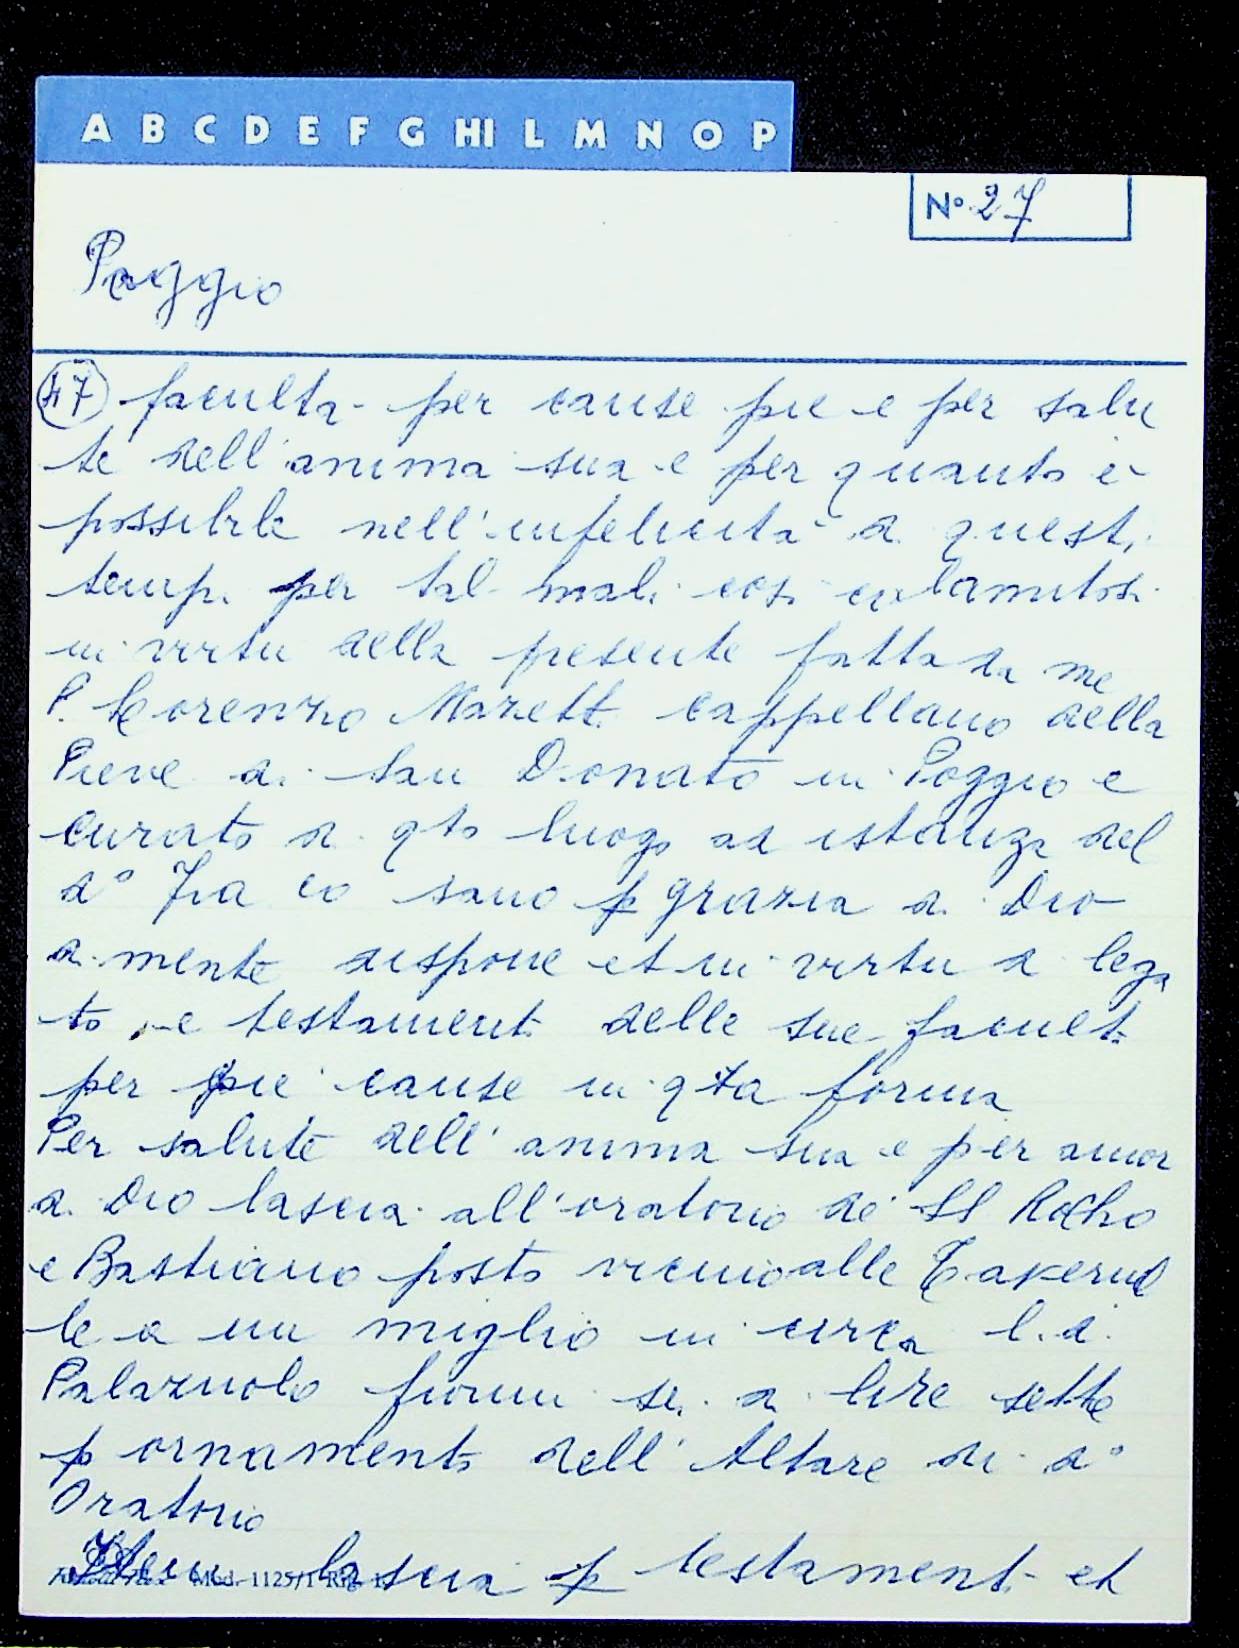 A B C D E F G HI L M N O P
N° 27
Poggio
47 faculta per cause pie e per salu
te dell'anima sua e per quanto è
possibile nell'infelicità di questi
tempi per tal mali così calamitosi
in virtu della presente fatta da me
P. Lorenzo Mazetti cappellano della
Pieve di San Donato in Poggio e
curato di qto luogo ad istanza del
do sano p grazia di Dio
di mente dispone et in virtu di lega
to e testamenti delle sue facult
per pie cause in qta forma
Per salute dell'anima sua e per amor
di Dio lascia all'oratorio de' SS Rocho
e Bastiano posto vicino alle Tavernel
le a un miglio in circa l.d.
Palazuolo fiorini sei di lire sette
p ornamento dell'Altare di do
Oratorio
Item lascia p testamento et
Mod. 1125/1 Rig.